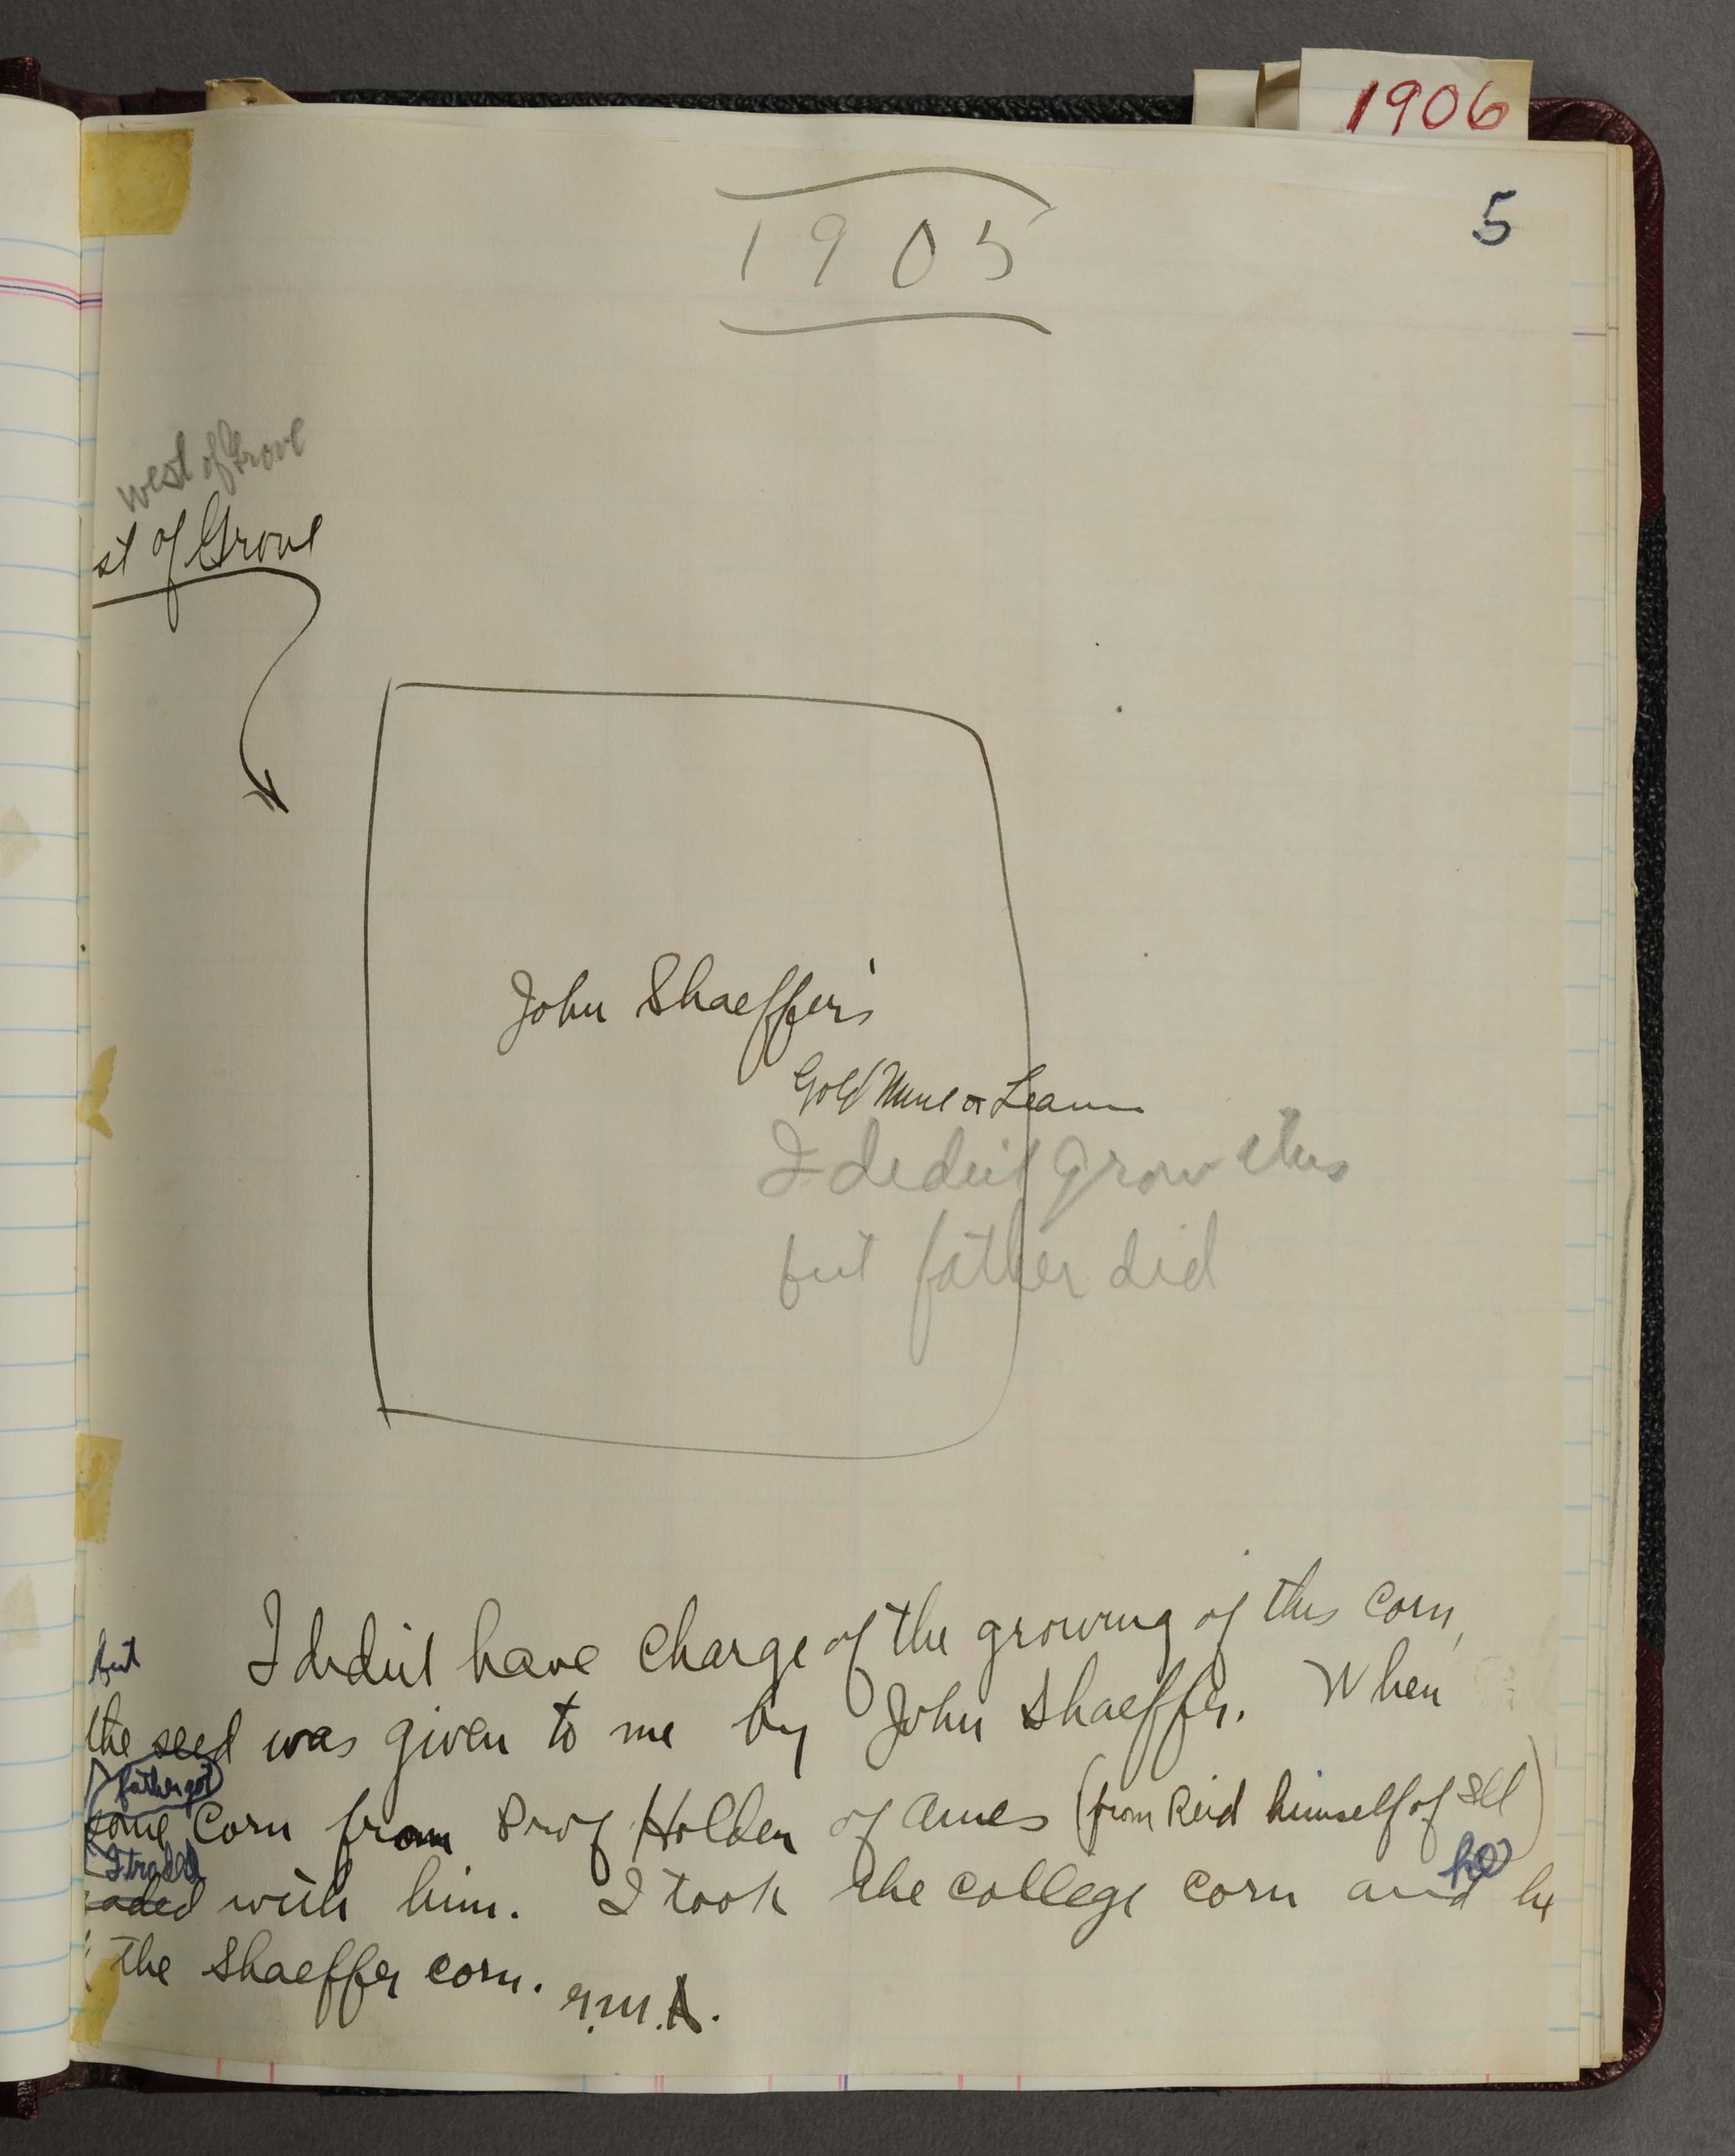 1906
5
1905
west of Grove
st of Grove
John Shaeffer's
Gold Mine or Leam
I didn't grow this
but father did
I didn't have charge of the growing of this corn,
but
the seed was given to me by John Shaeffer. When
father got
some corn from Prof Holden of Ames (from Reid himself of Ill)
I traded
he
aded with him. I took the college corn and he
the Shaeffer corn.